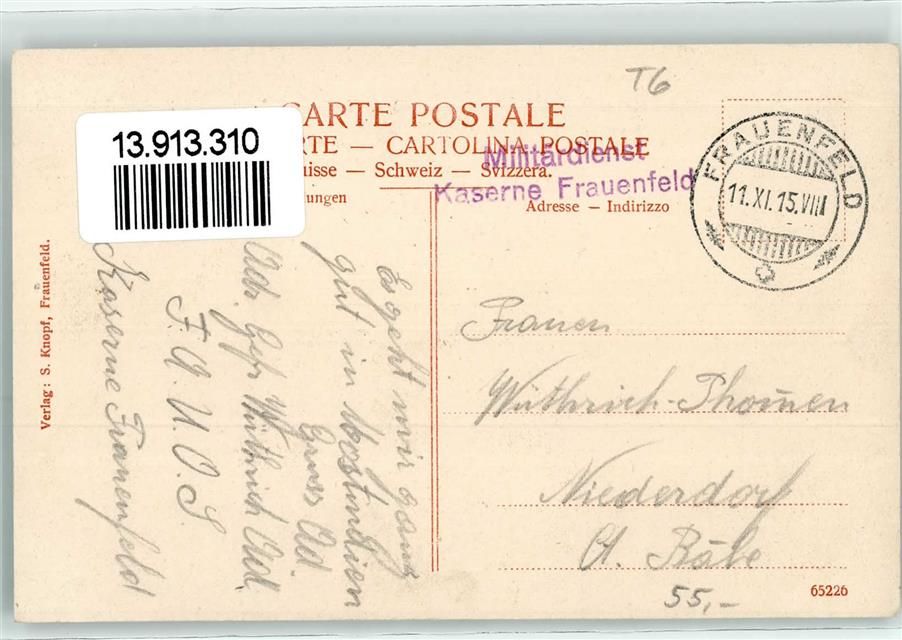 T6
CARTE POSTALE
RTE — CARTOLINA POSTALE
uisse — Schweiz — Svizzera.
ungen
Adresse — Indirizzo
13.913.310
Militärdienst
Kaserne Frauenfeld
FRAUENFELD
11.XI.15.VIII
Verlag: S. Knopf, Frauenfeld.
Es geht mir ganz
gut in
Gruss Ad.
Adr. Gefr. Wüthrich Ad.
F. A. U. O. S.
Kaserne Frauenfeld
Frauen
Wüthrich-Thommen
Niederdorf
Ct. Bâle
65226
55,-